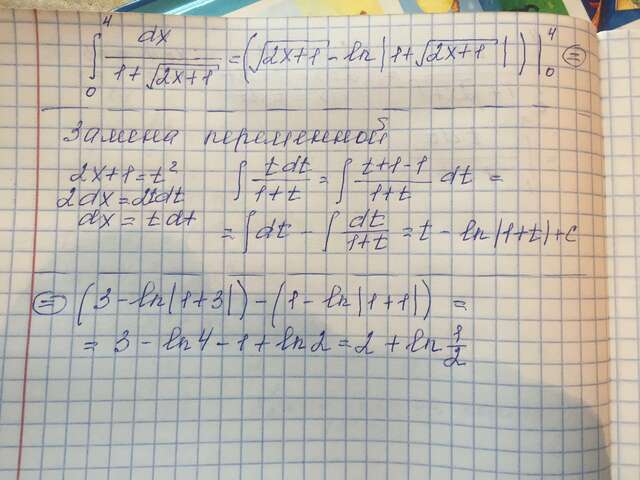 ∫₀⁴ dx/(1+√(2x+1)) = (√(2x+1) - ln|1+√(2x+1)|)|₀⁴ ⊜
Замена переменной
2x+1=t² ∫ t dt/(1+t) = ∫ (t+1-1)/(1+t) dt =
2dx=2tdt
dx = t dt = ∫dt - ∫ dt/(1+t) = t - ln|1+t|+c
⊜ (3-ln|1+3|)-(1-ln|1+1|) =
= 3 - ln4 - 1 + ln2 = 2 + ln 1/2